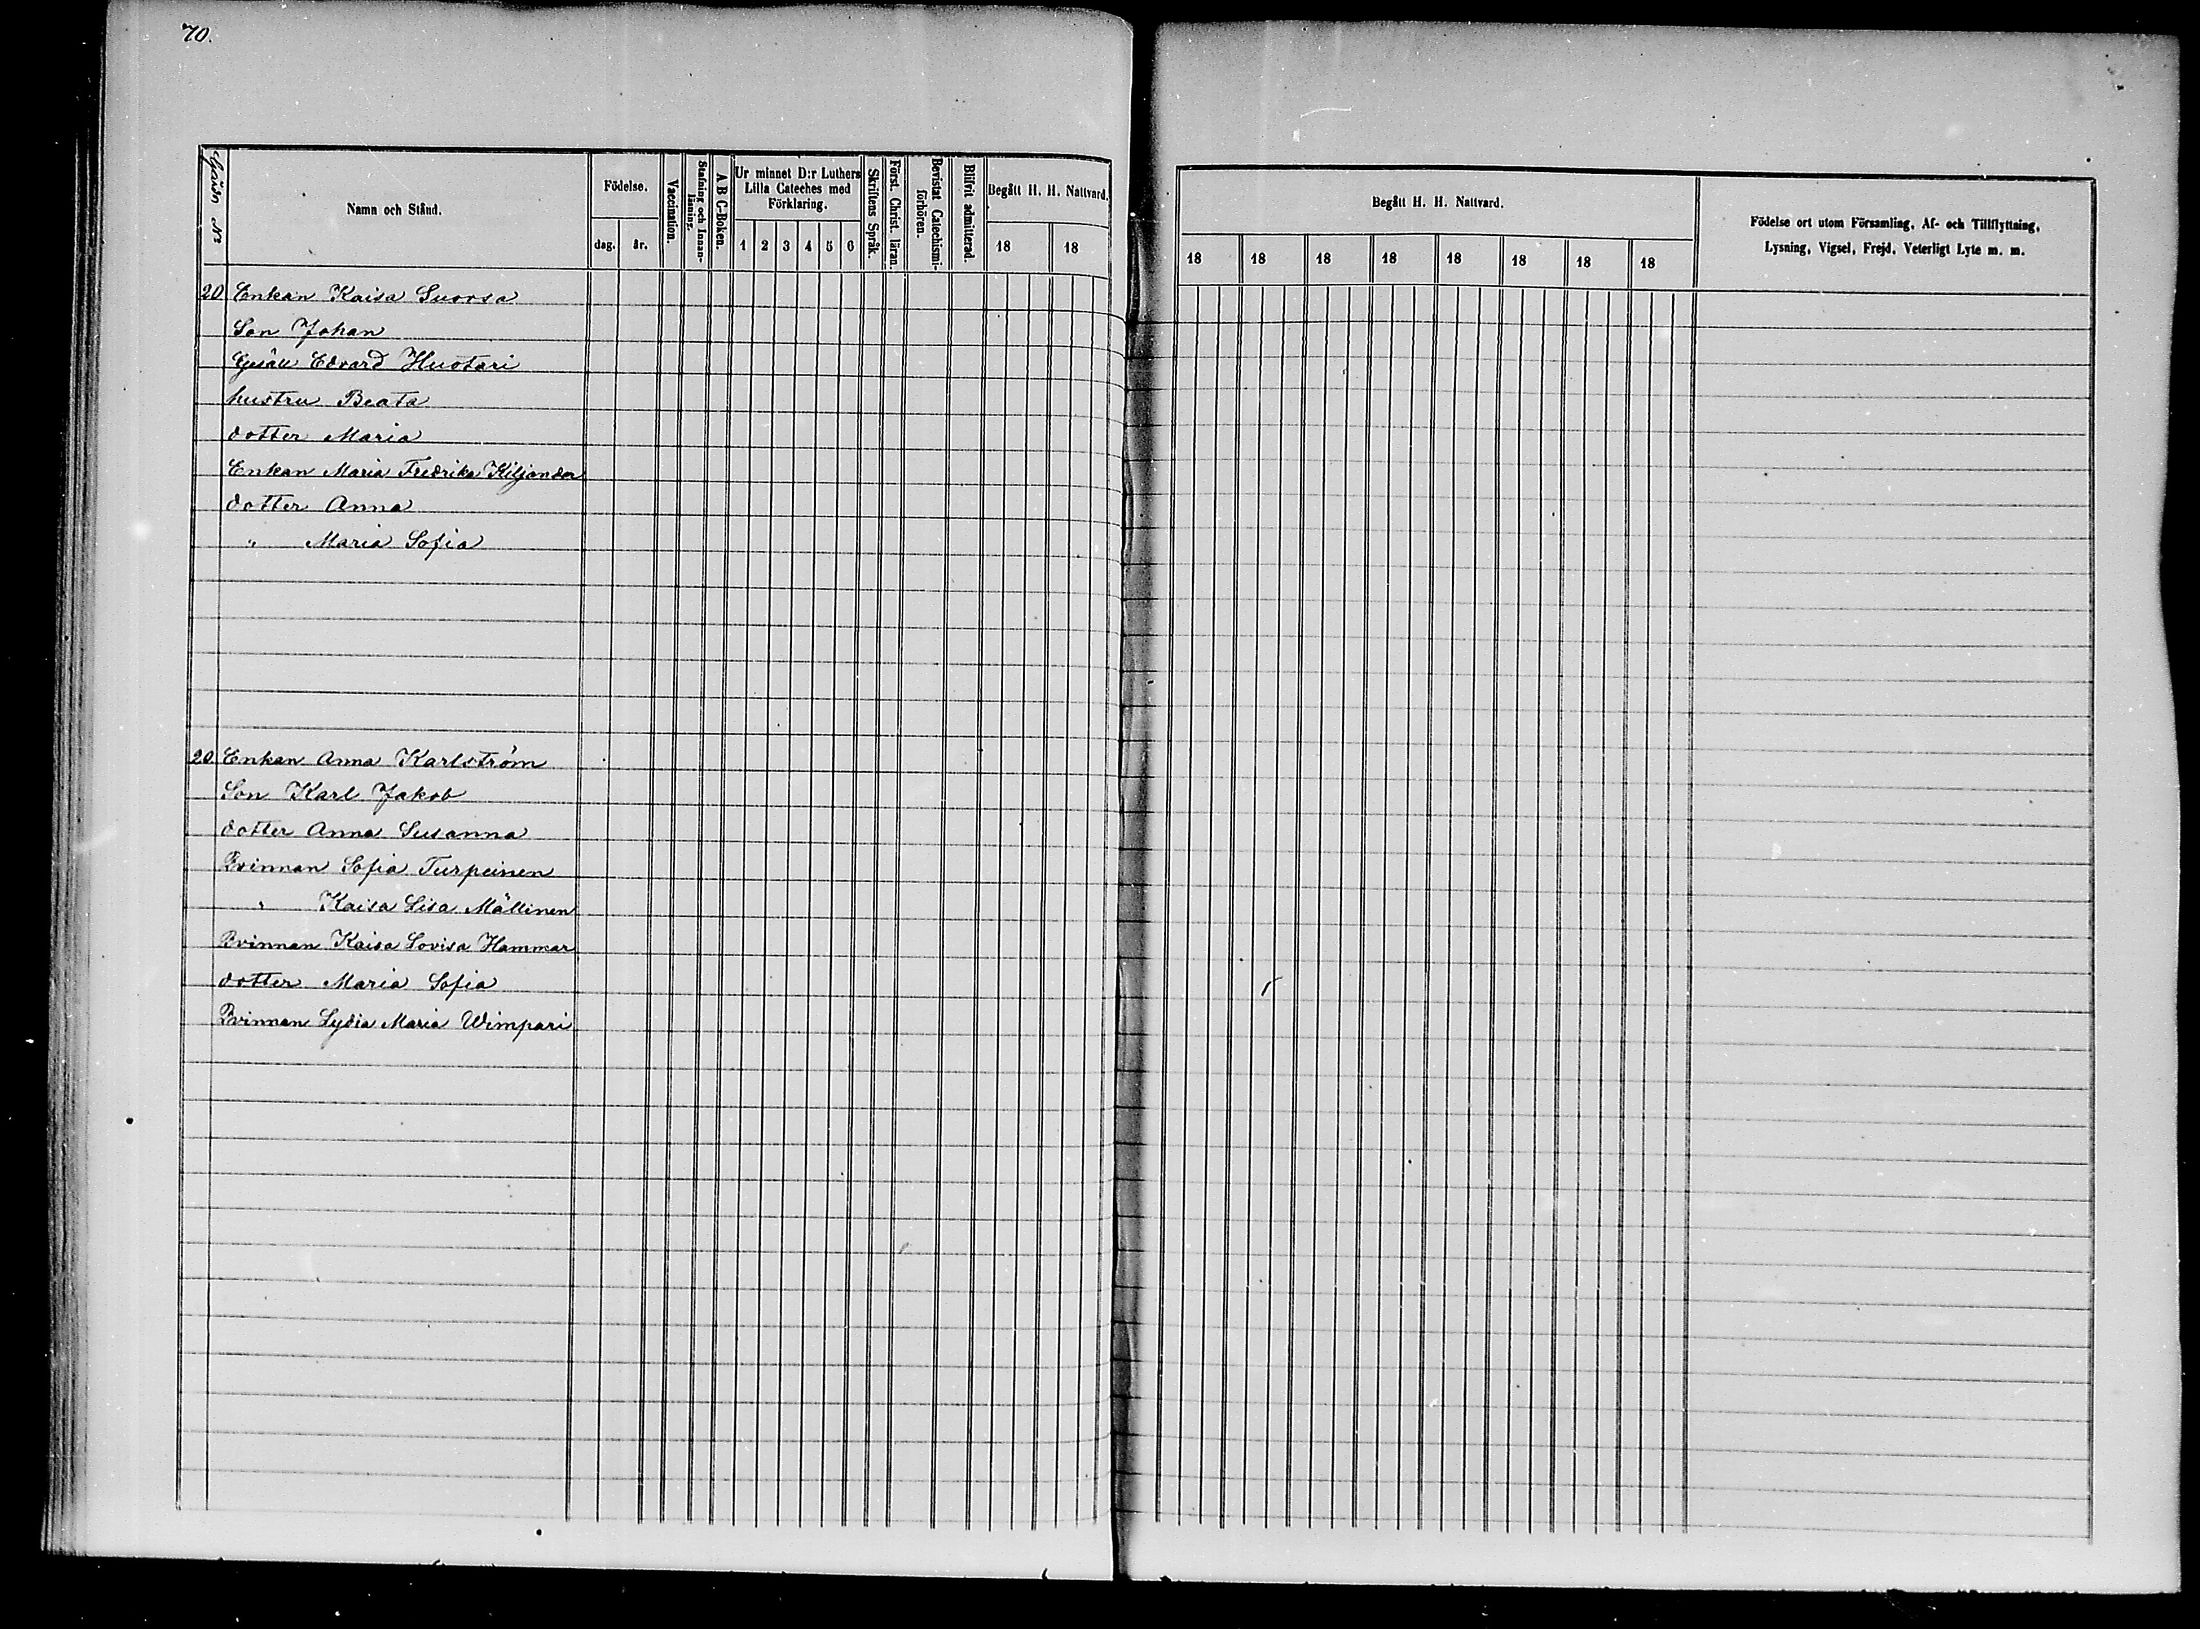 70.
Gårdn No
Namn och Stånd.
Födelse.
dag. år.
Vaccination.
Stafning och Innan-läsning.
A B C-Boken.
Ur minnet D:r Luthers
Lilla Cateches med
Förklaring.
1 2 3 4 5 6
Skriftens Språk.
Först. Christ. läran.
Bevistat Catechismi-förhören.
Blifvit admitterad.
Begått H. H. Nattvard.
18 18
Begått H. H. Nattvard.
18 18 18 18 18 18 18 18
Födelse ort utom Församling, Af- och Tillflyttning,
Lysning, Vigsel, Frejd, Veterligt Lyte m. m.
20 Enkan Kaisa Suorsa
Son Johan
Gesäll Edvard Huotari
hustru Beata
dotter Maria
Enkan Maria Fredrika Kiljander
dotter Anna
" Maria Sofia
20 Enkan Anna Karlström
Son Karl Jakob
dotter Anna Susanna
Qvinnan Sofia Turpeinen
" Kaisa Lisa Mällinen
Qvinnan Kaisa Lovisa Hammar
dotter Maria Sofia
Qvinnan Lydia Maria Wimpari